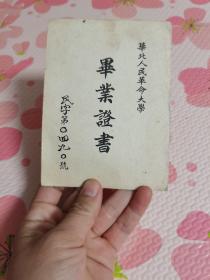 華北人民革命大學
畢業證書
民字第〇四九〇號